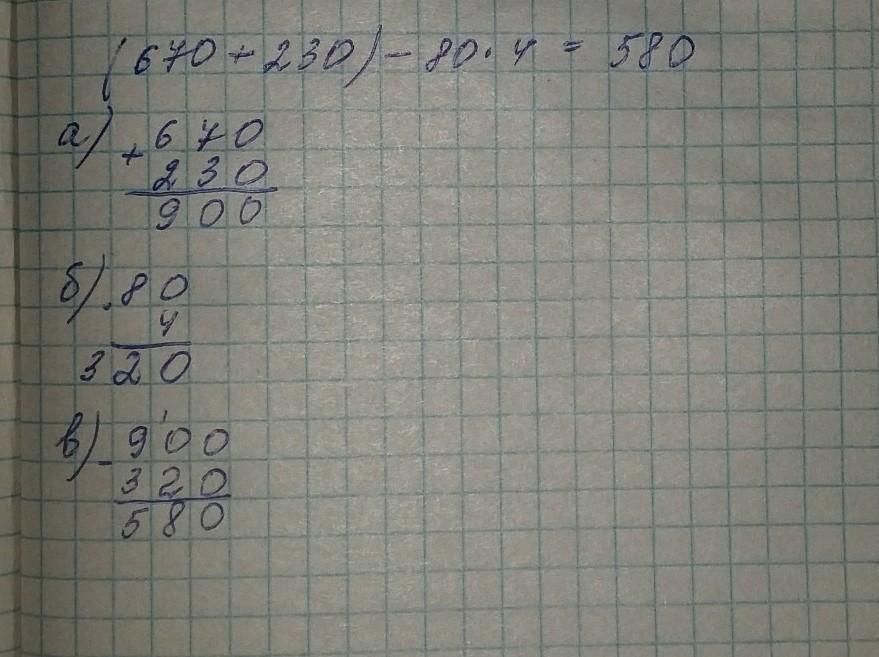 (670 + 230) - 80 · 4 = 580
а) + 670
230
900
б) · 80
4
320
в) - 9'00
320
580